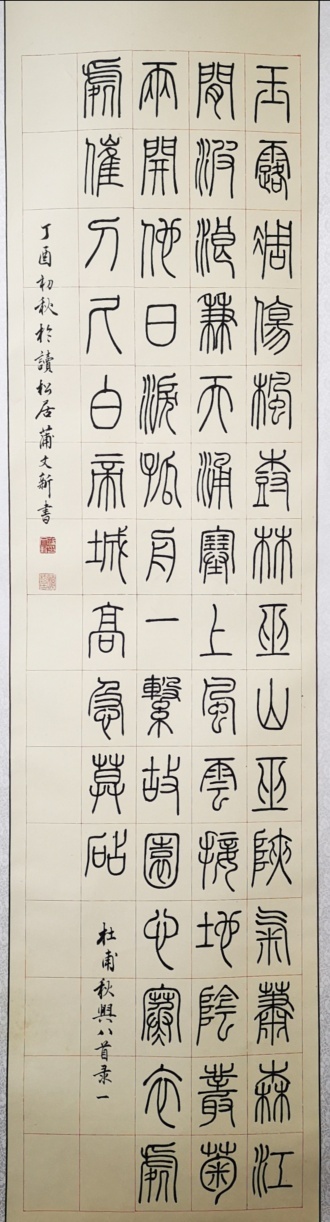 玉露凋傷楓尌林巫山巫陜氣蕭森江
間波浪兼天涌塞上風雲接地陰叢菊
兩開他日淚孤舟一繫故園心寒衣處
處催刀尺白帝城高急莫砧
杜甫秋興八首录一
丁酉初秋於讀松居蒲文新書